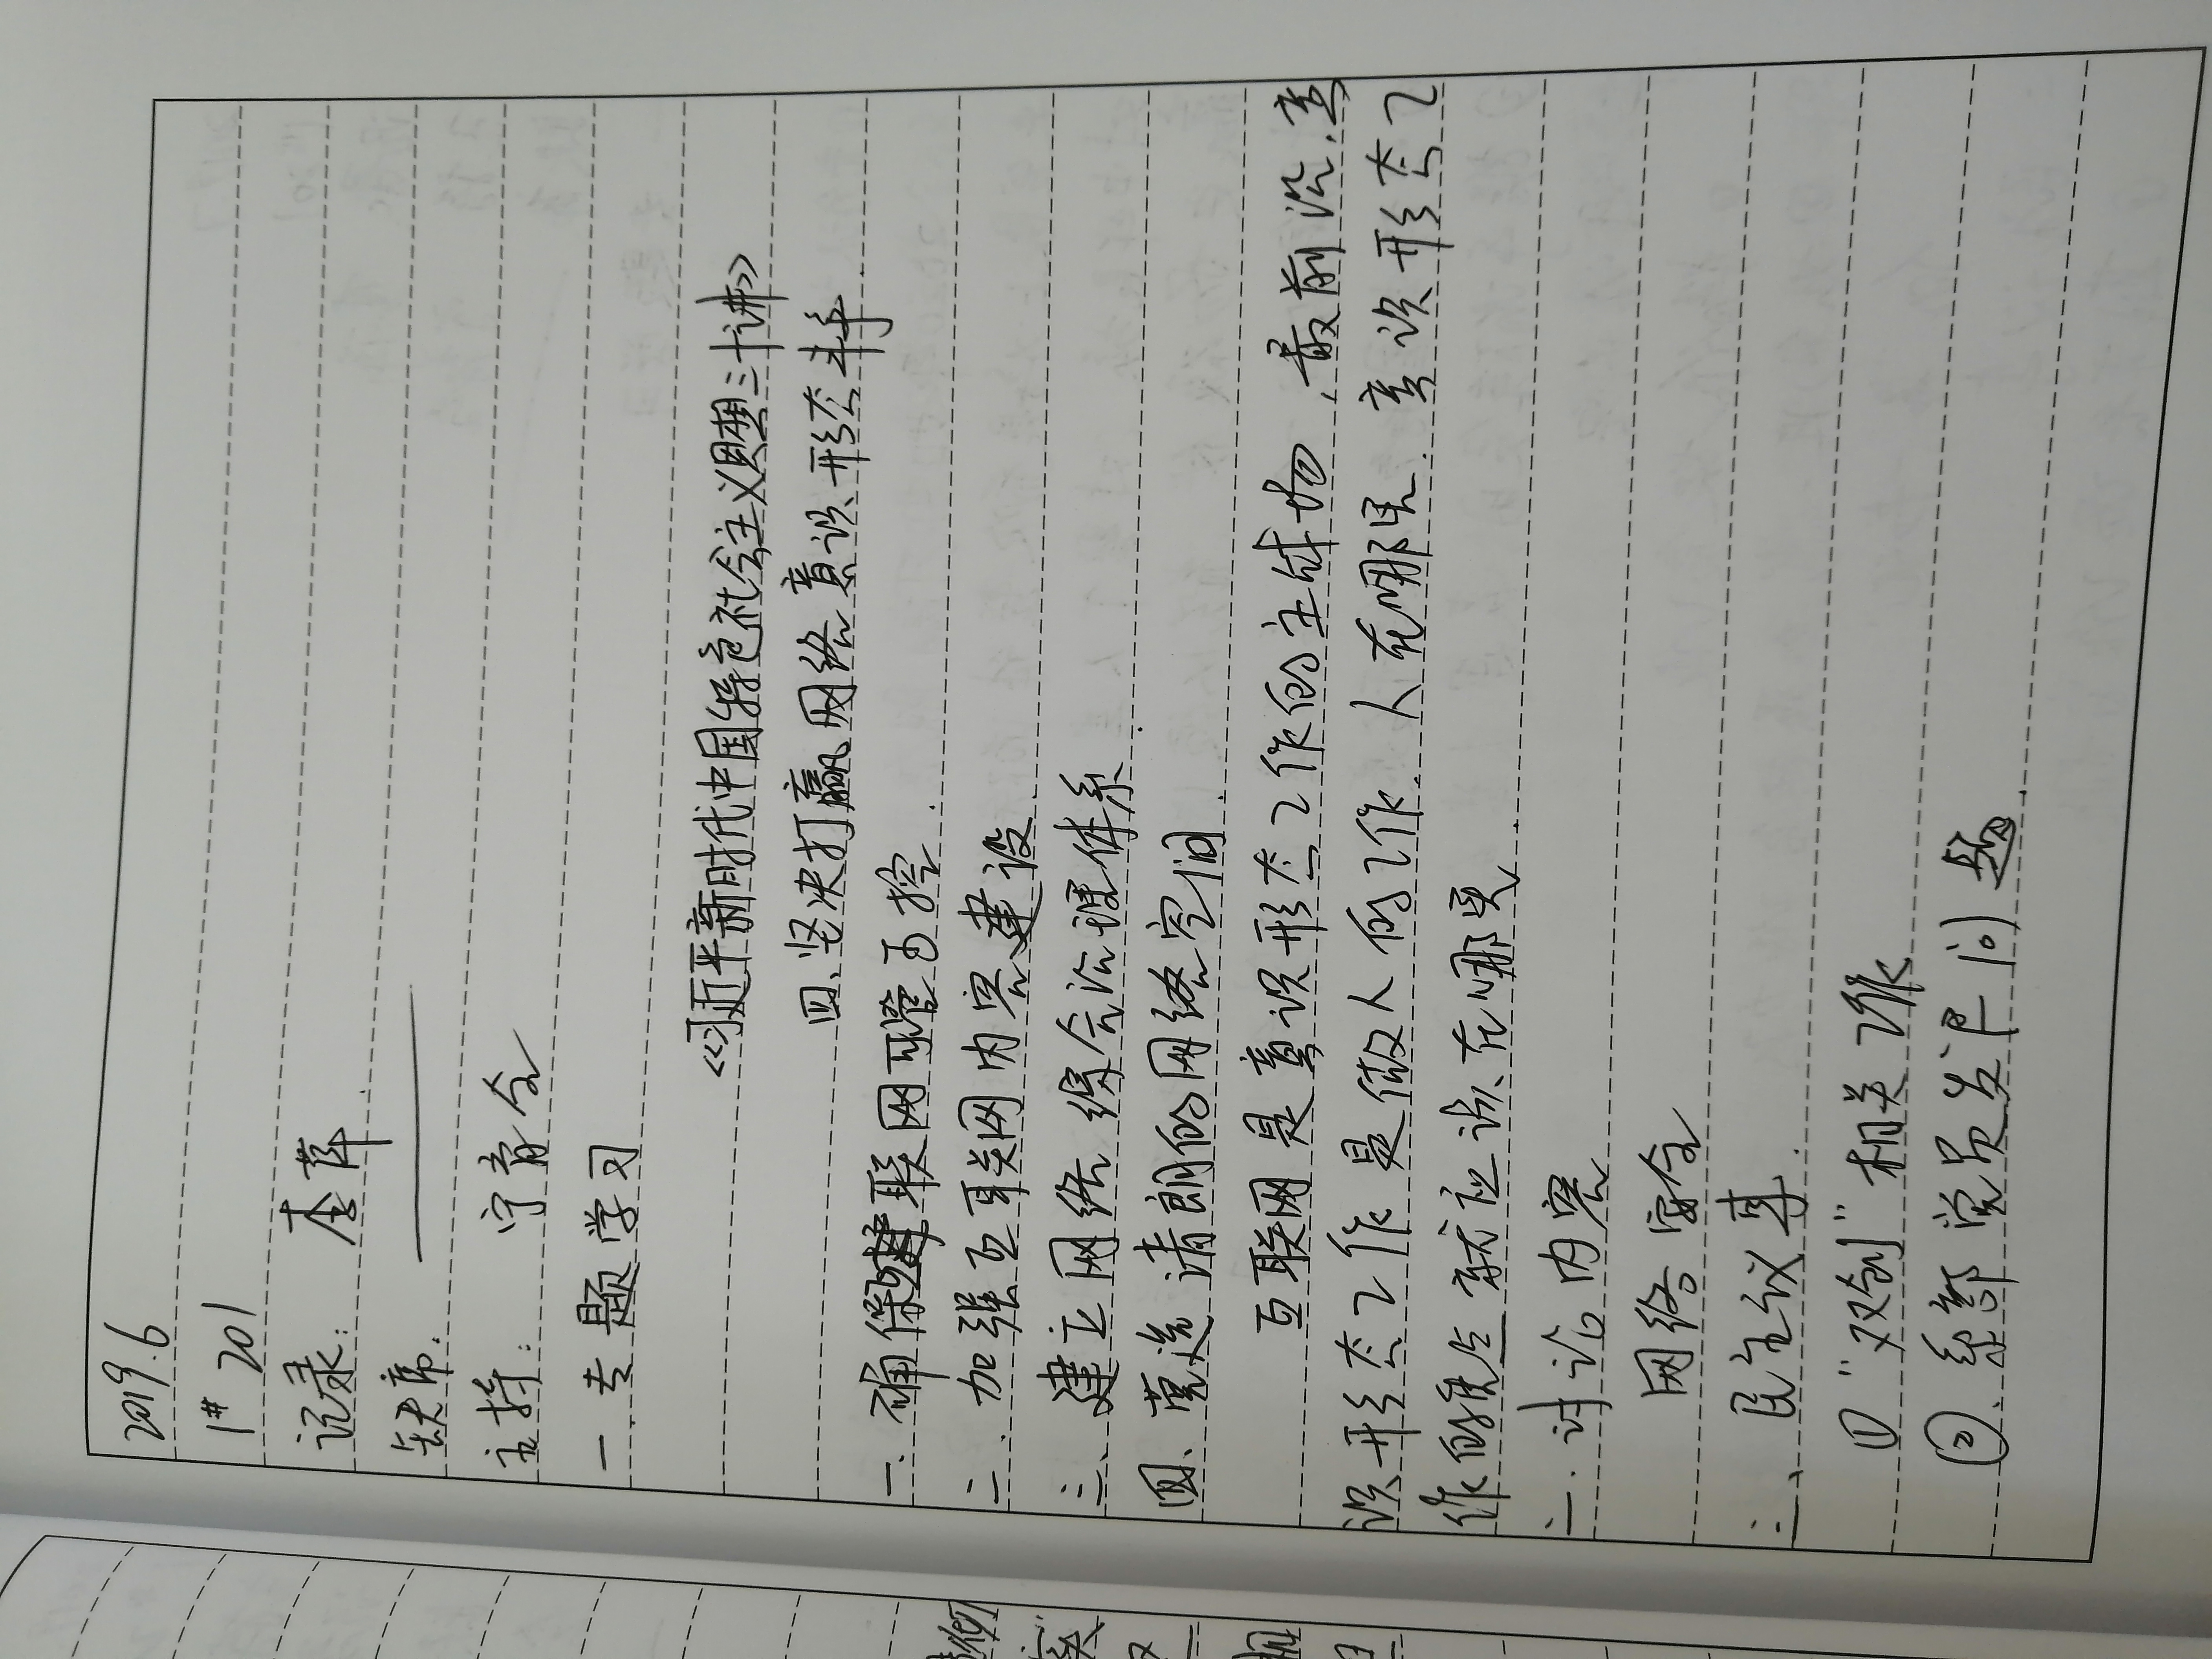 2019.6
1# 201
记录: 李萍
缺席: ——
主持: 宁育令
一.专题学习
《习近平新时代中国特色社会主义思想三十讲》
四、坚决打赢网络意识形态斗争
一.确保互联网可管可控
二.加强互联网内容建设
三、建立网络综合治理体系
四、营造清朗的网络空间
互联网是意识形态工作的主战场,最前沿.意
识形态工作是做人的工作.人在哪里.意识形态工
作的重点就应该在哪里
二.讨论内容
网络安全
三、民主议事
① "双创"相关工作
②.系部党员发展问题